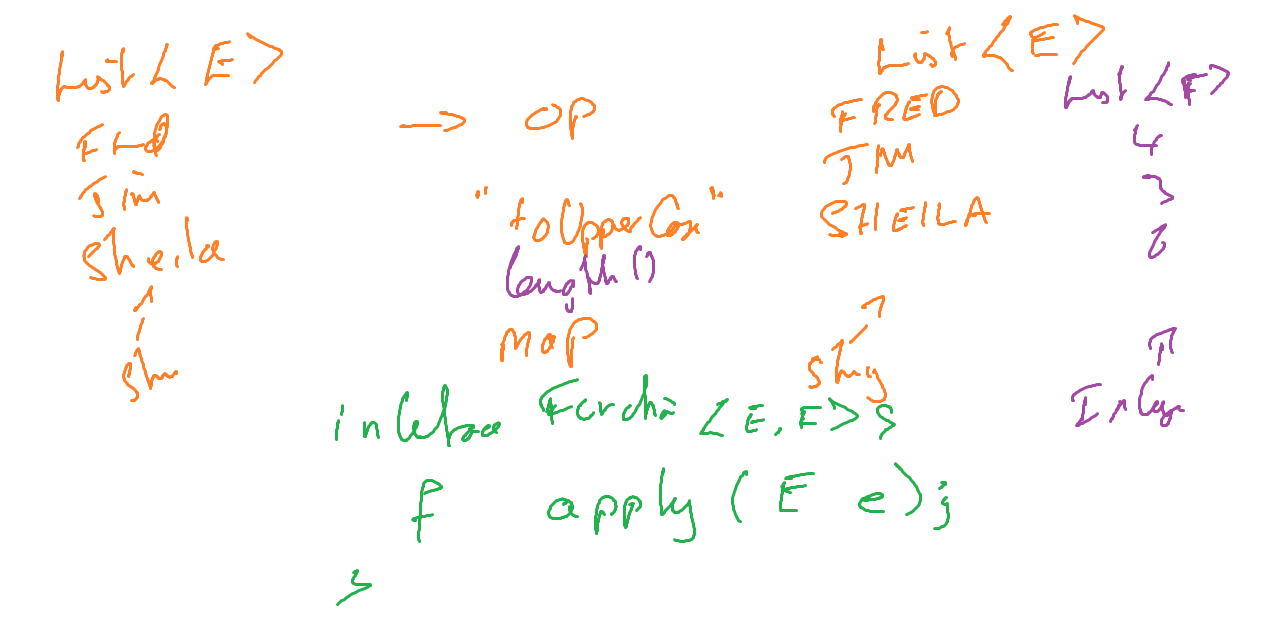 List < E >
Fred
Jim
Sheila
→ OP
"toUpperCase"
length()
map
List < E >
FRED
JIM
SHEILA
List <F>
4
3
6
interface Function < E, F > {
F apply ( E e );
}